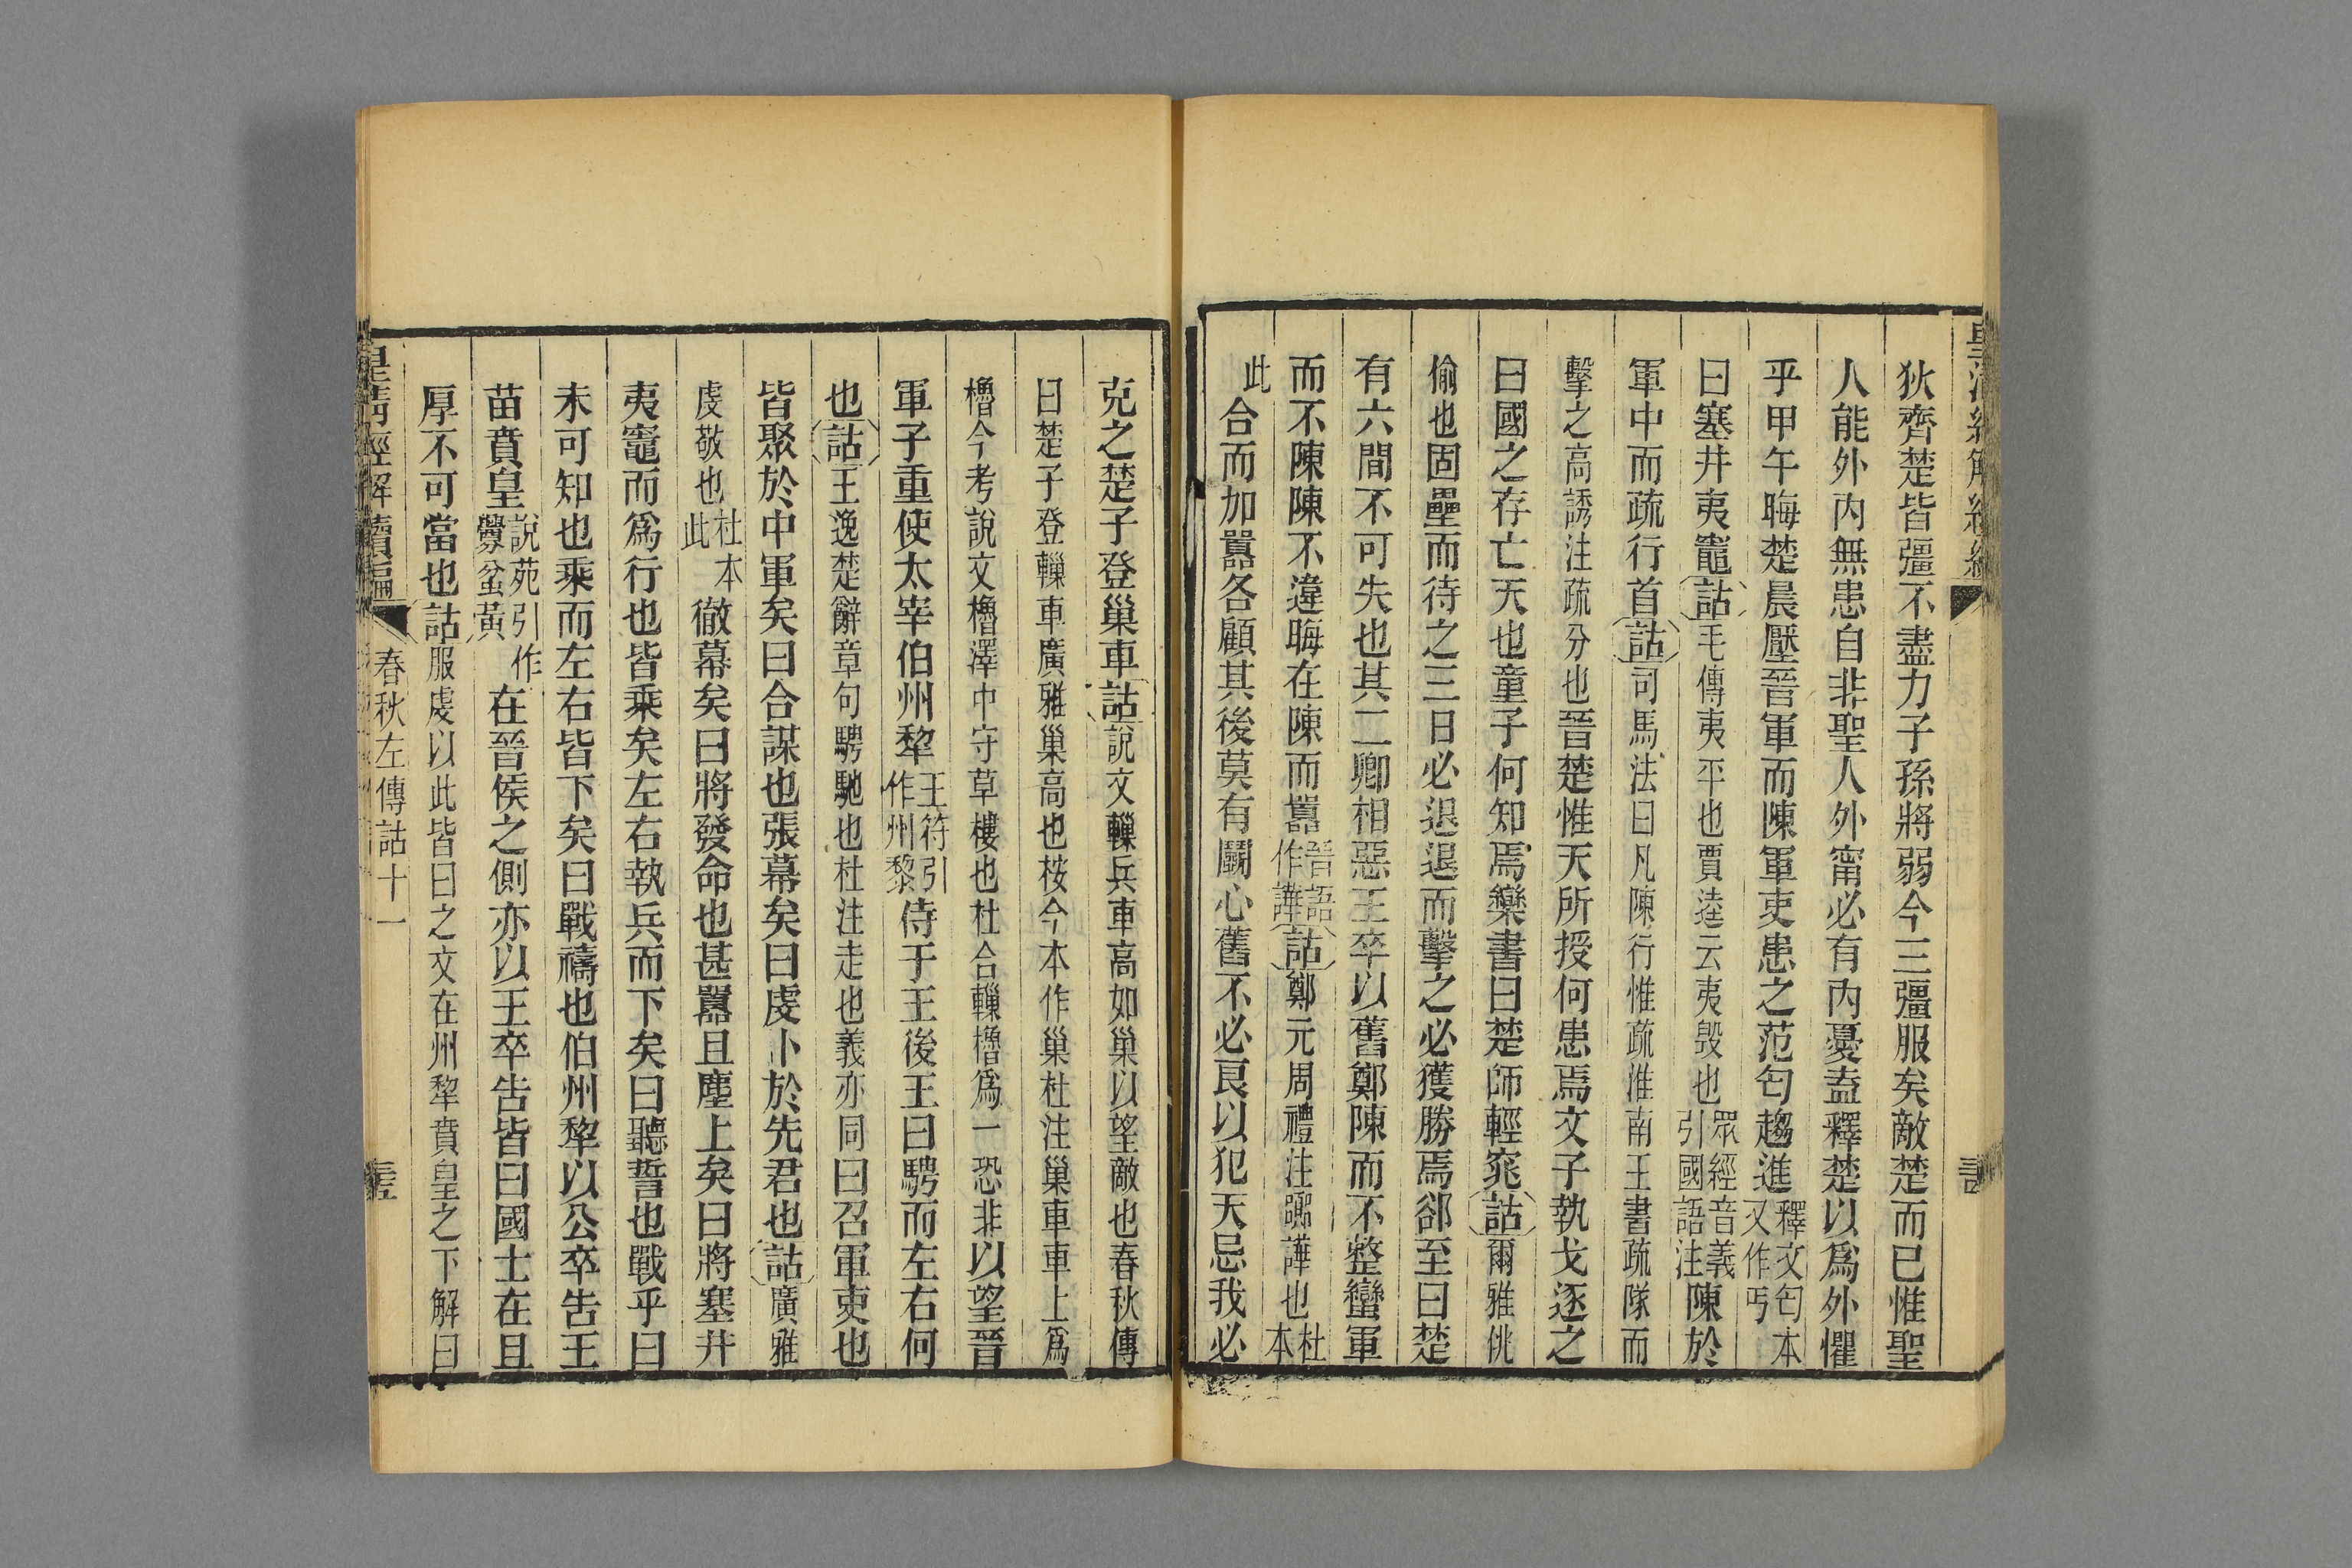 狄齊楚皆彊不盡力子孫將弱今三彊服矣敵楚而已惟聖
人能外內無患自非聖人外甯必有內憂盍釋楚以爲外懼
乎甲午晦楚晨壓晉軍而陳軍吏患之范匄趨進釋文匄本又作丐
曰塞井夷竈詁毛傳夷平也賈逵云夷毀也眾經音義引國語注陳於
軍中而疏行首詁司馬法曰凡陳行惟疏淮南王書疏隊而
擊之高誘注疏分也晉楚惟天所授何患焉文子執戈逐之
曰國之存亡天也童子何知焉欒書曰楚師輕窕詁爾雅佻
偷也固壘而待之三日必退退而擊之必獲勝焉郤至曰楚
有六間不可失也其二卿相惡王卒以舊鄭陳而不整蠻軍
而不陳陳不違晦在陳而囂晉語作譁詁鄭元周禮注嚻譁也杜本
此合而加囂各顧其後莫有鬭心舊不必良以犯天忌我必
克之楚子登巢車詁說文轈兵車高如巢以望敵也春秋傳
曰楚子登轈車廣雅巢高也桉今本作巢杜注巢車車上爲
櫓今考說文櫓澤中守草樓也杜合轈櫓爲一恐非以望晉
軍子重使太宰伯州犂王符引作州黎侍于王後王曰騁而左右何
也詁王逸楚辭章句騁馳也杜注走也義亦同曰召軍吏也
皆聚於中軍矣曰合謀也張幕矣曰虔卜於先君也詁廣雅
虔敬也杜本此徹幕矣曰將發命也甚囂且塵上矣曰將塞井
夷竈而爲行也皆乘矣左右執兵而下矣曰聽誓也戰乎曰
未可知也乘而左右皆下矣曰戰禱也伯州犂以公卒告王
苗賁皇說苑引作釁蚠黃在晉侯之側亦以王卒告皆曰國士在且
厚不可當也詁服虔以此皆曰之文在州犂賁皇之下解曰
皇清經解續編
春秋左傳詁十一